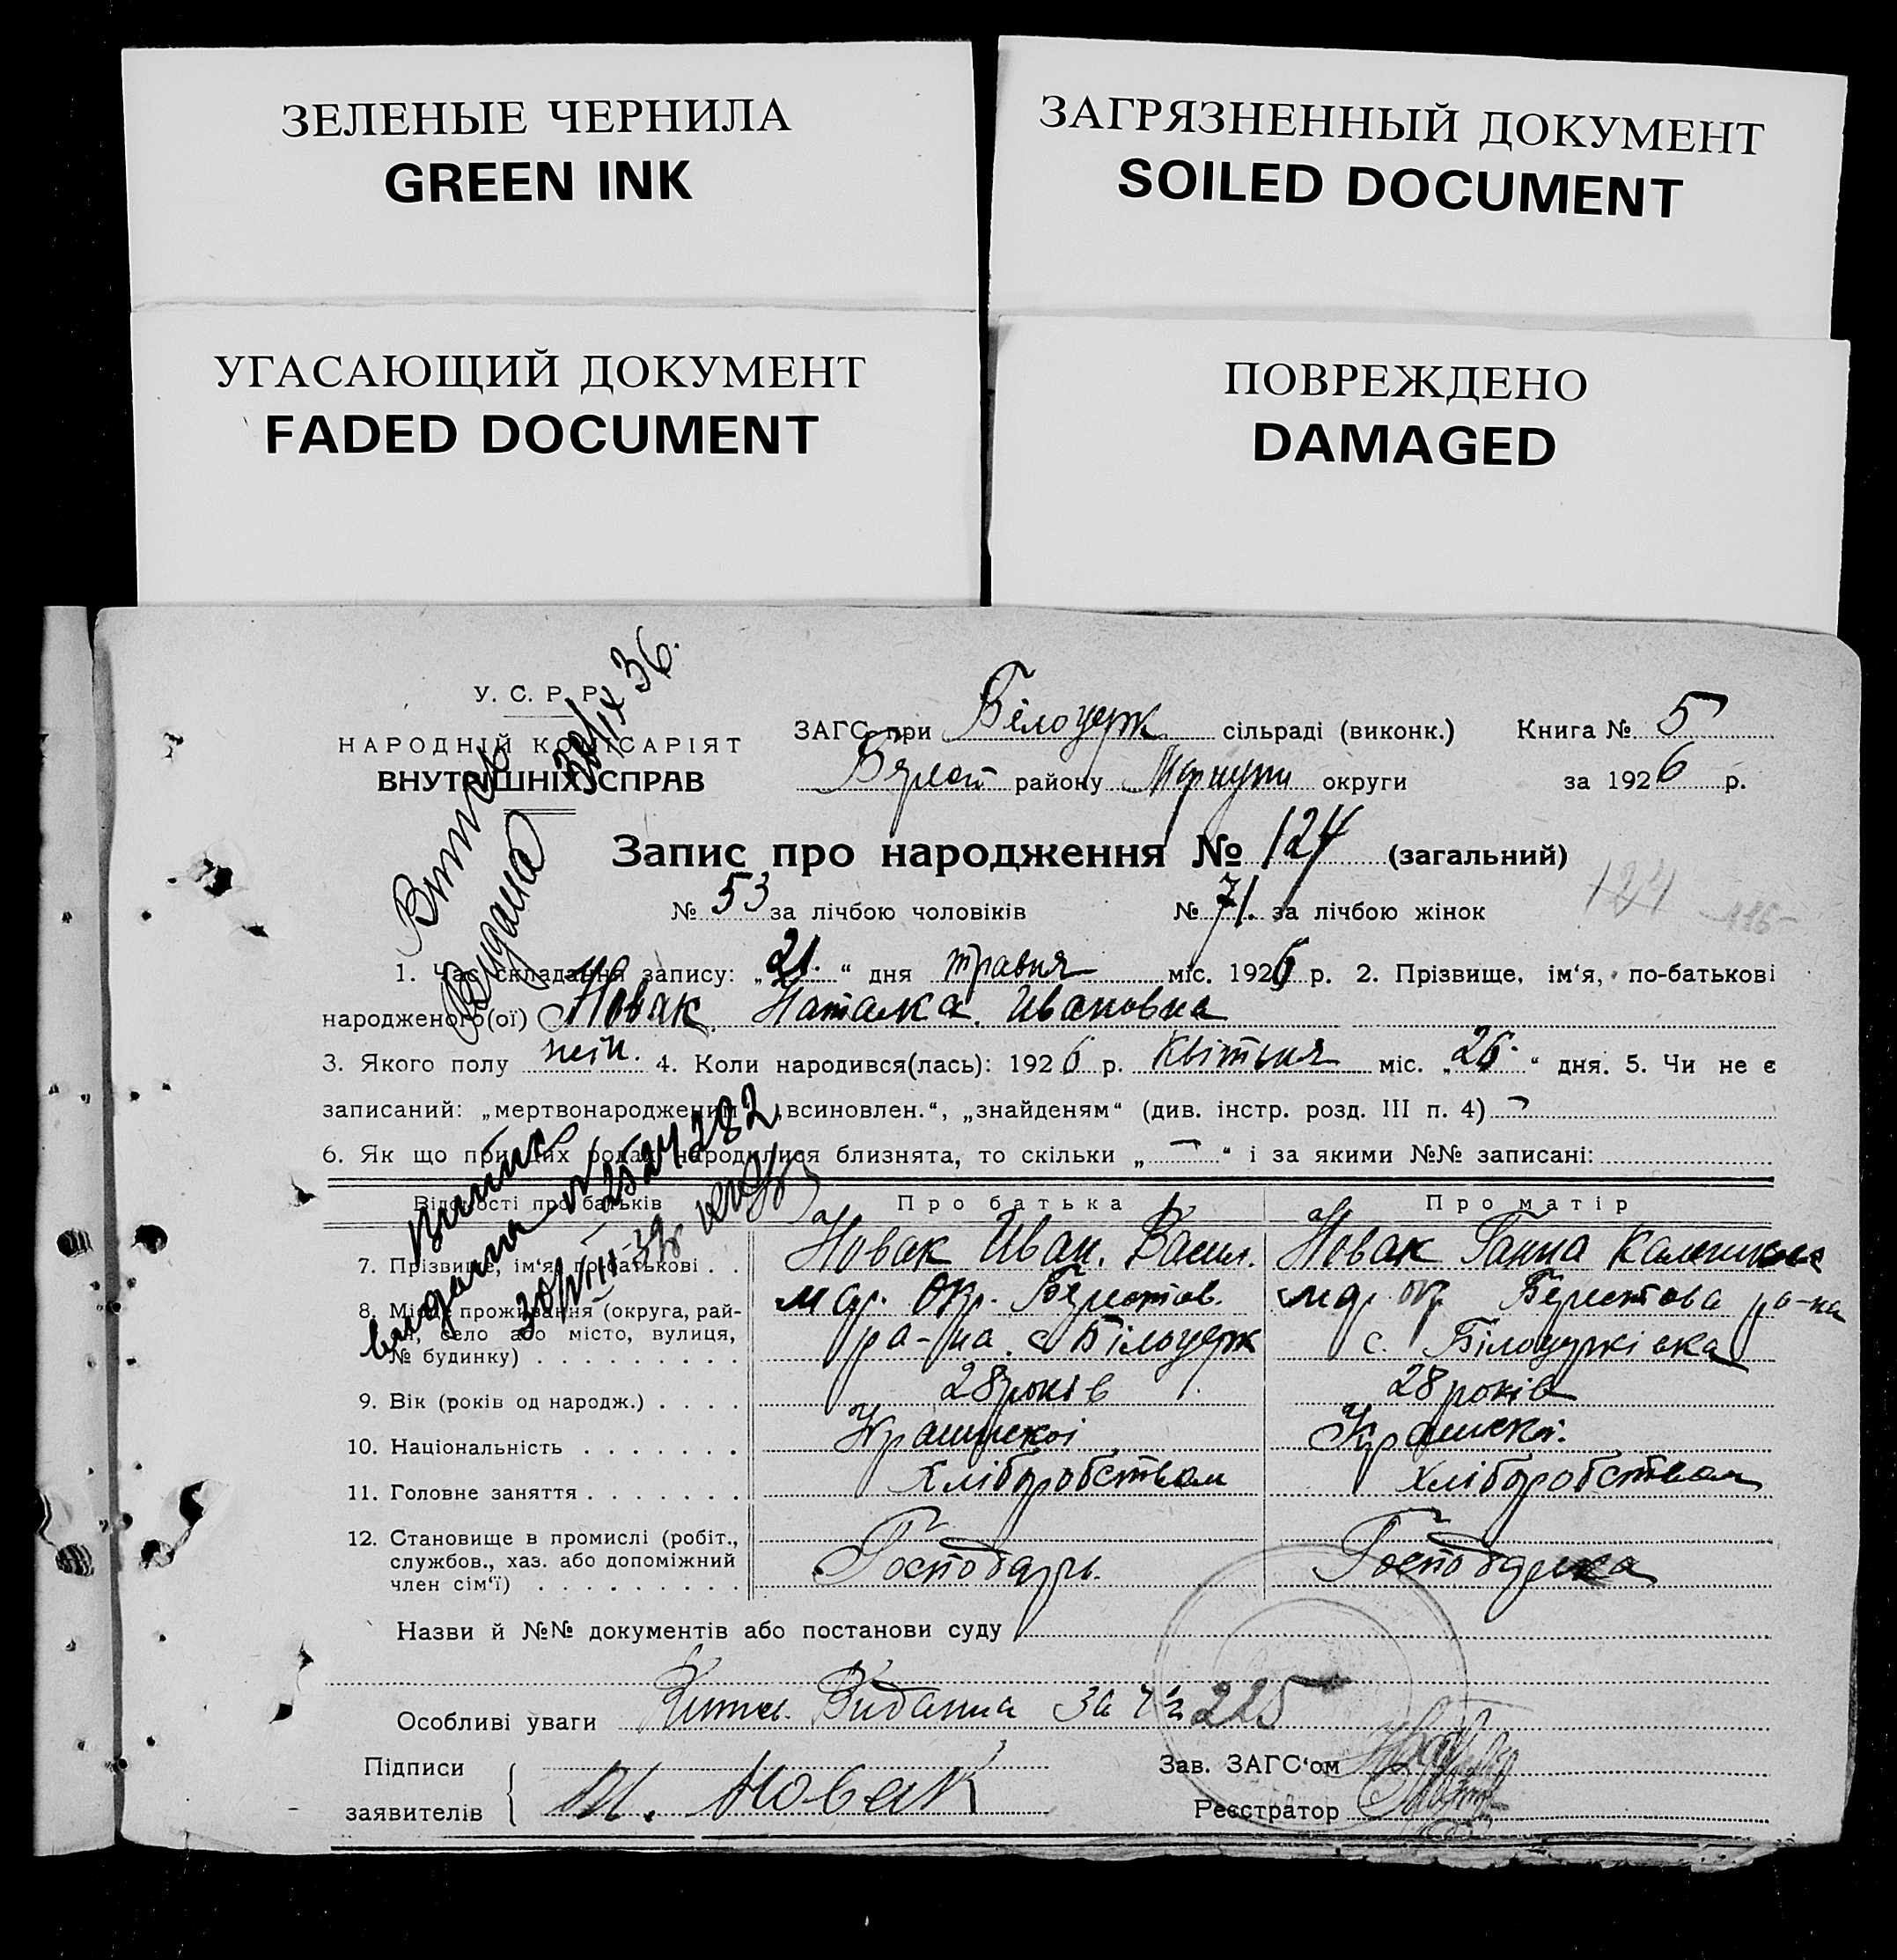 ЗЕЛЕНЫЕ ЧЕРНИЛА
GREEN INK
ЗАГРЯЗНЕННЫЙ ДОКУМЕНТ
SOILED DOCUMENT
УГАСАЮЩИЙ ДОКУМЕНТ
FADED DOCUMENT
ПОВРЕЖДЕНО
DAMAGED
У. С. Р. Р.
НАРОДНІЙ КОМІСАРІЯТ
ВНУТРІШНІХ СПРАВ
ЗАГС при Білоцерк сільраді (виконк.) Книга № 5
району округи за 1926 р.
Запис про народження № 124 (загальний)
№ 53 за лічбою чоловіків № 71. за лічбою жінок
124
1. Час складання запису: „21.“ дня травня міс. 1926 р. 2. Прізвище, ім‘я, по-батькові
народженого(ої) Новак Наталка Ивановна
3. Якого полу 4. Коли народився(лась): 1926 р. Квітня міс. „26.“ дня. 5. Чи не є
записаний: „мертвонародженим“, „всиновлен.“, „знайденям“ (див. інстр. розд. III п. 4) -
6. Як що при цих родах народилися близнята, то скільки „-“ і за якими №№ записані:
Відомості про батьків Про батька Про матір
7. Прізвище, ім‘я, по-батькові . . Новак Иван. Васил. Новак Ганна
8. Місце проживання (округа, рай-
он, село або місто, вулиця,
№ будинку) . . . . . . . . .
окр. Берестов.
ра-на. с Білоцерк
Берестова ра-на
с. Білоцерківка
9. Вік (років од народж.) . . . . 28 років 28 років
10. Національність . . . . . . .
11. Головне заняття . . . . . . . Хліборобством Хліборобством
12. Становище в промислі (робіт.,
службов., хаз. або допоміжний
член сім‘ї) . . . . . . . . .
Господарь. Господарка
Назви й №№ документів або постанови суду
Особливі уваги Видана За 225
Підписи
заявителів
Новак
Зав. ЗАГС‘ом
Реєстратор
Видана 36.
видана